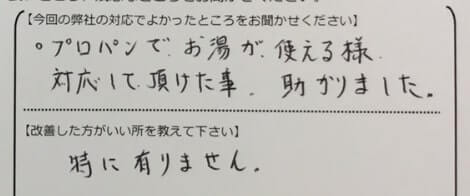 【今回の弊社の対応でよかったところをお聞かせください】
。プロパンで、お湯が、使える様、
対応して頂けた事、助かりました。
【改善した方がいい所を教えて下さい】
特に有りません。